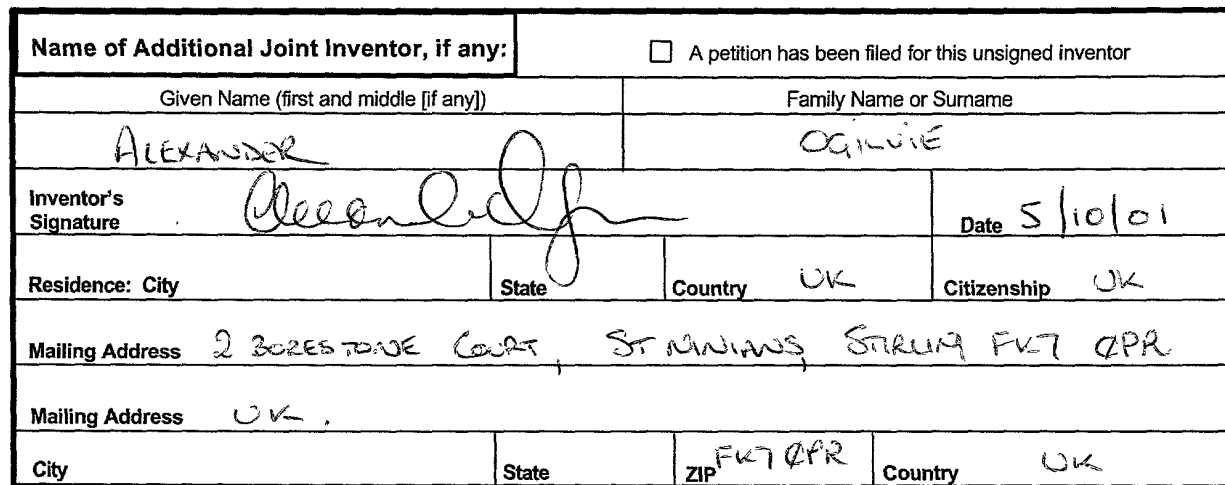 Name of Additional Joint Inventor, if any: ☐ A petition has been filed for this unsigned inventor
Given Name (first and middle [if any]) Family Name or Surname
ALEXANDER OGILVIE
Inventor's Signature Date 5/10/01
Residence: City State Country UK Citizenship UK
Mailing Address 2 BORESTONE COURT, ST NINIANS, STIRLING FK7 0PR
Mailing Address UK.
City State ZIP FK7 0PR Country UK